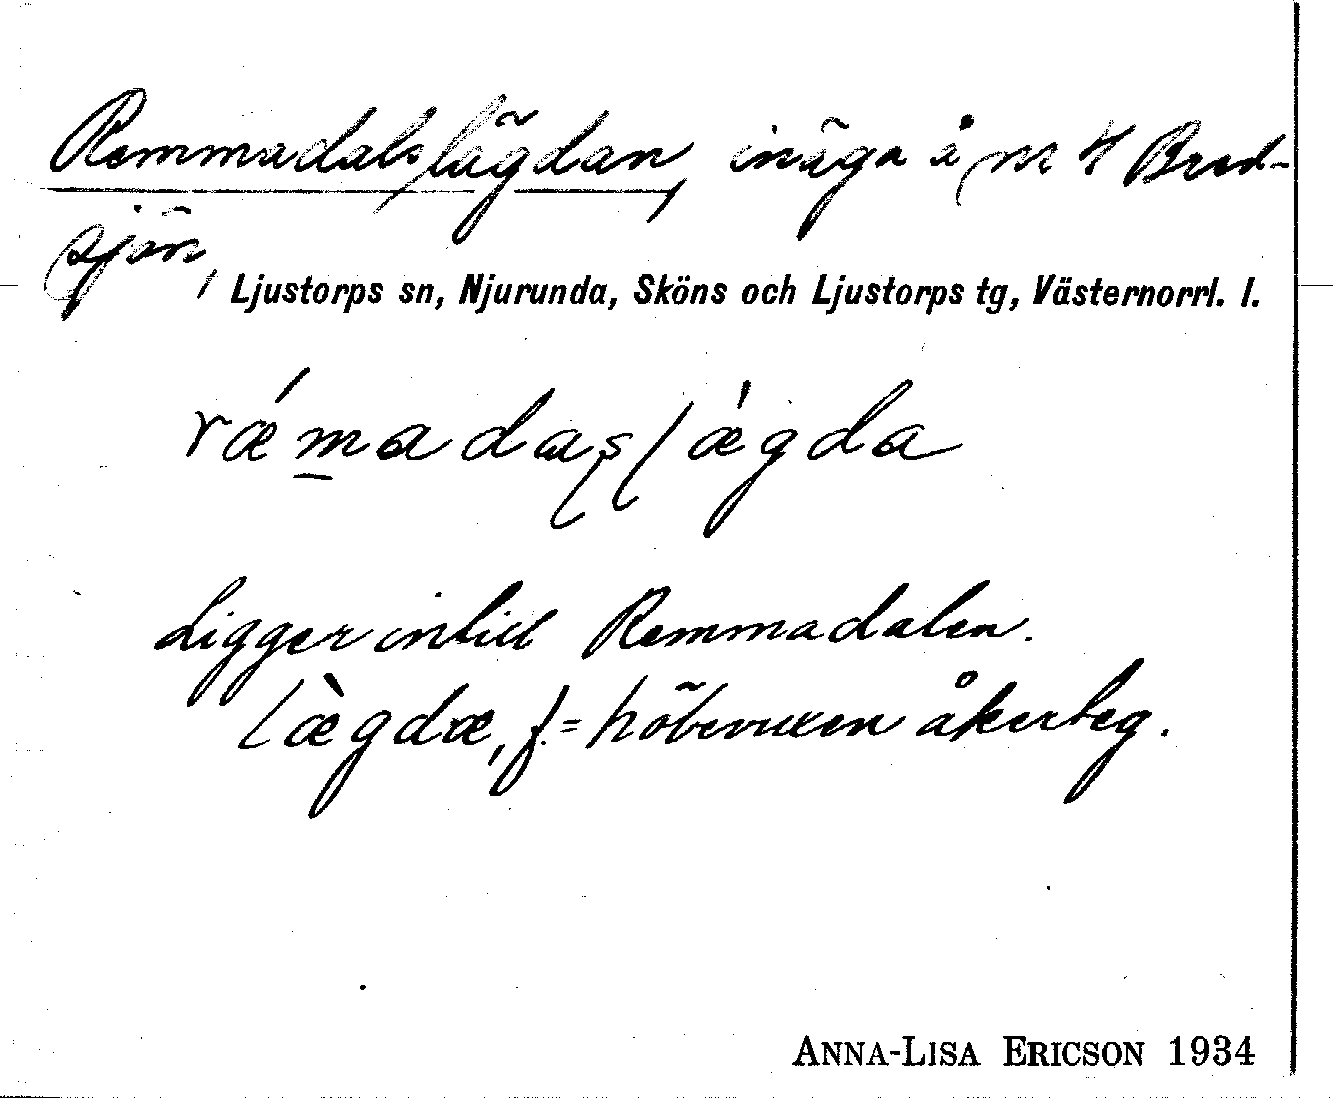 Remmadalslägdan, inäga å nr 4 Bred-
sjön, Ljustorps sn, Njurunda, Sköns och Ljustorps tg, Västernorrl. l.
rǽm̱adaslægda
Ligger intill Remmadalen.
lægdæ, f. = höbevuxen åkerteg.
ANNA-LISA ERICSON 1934